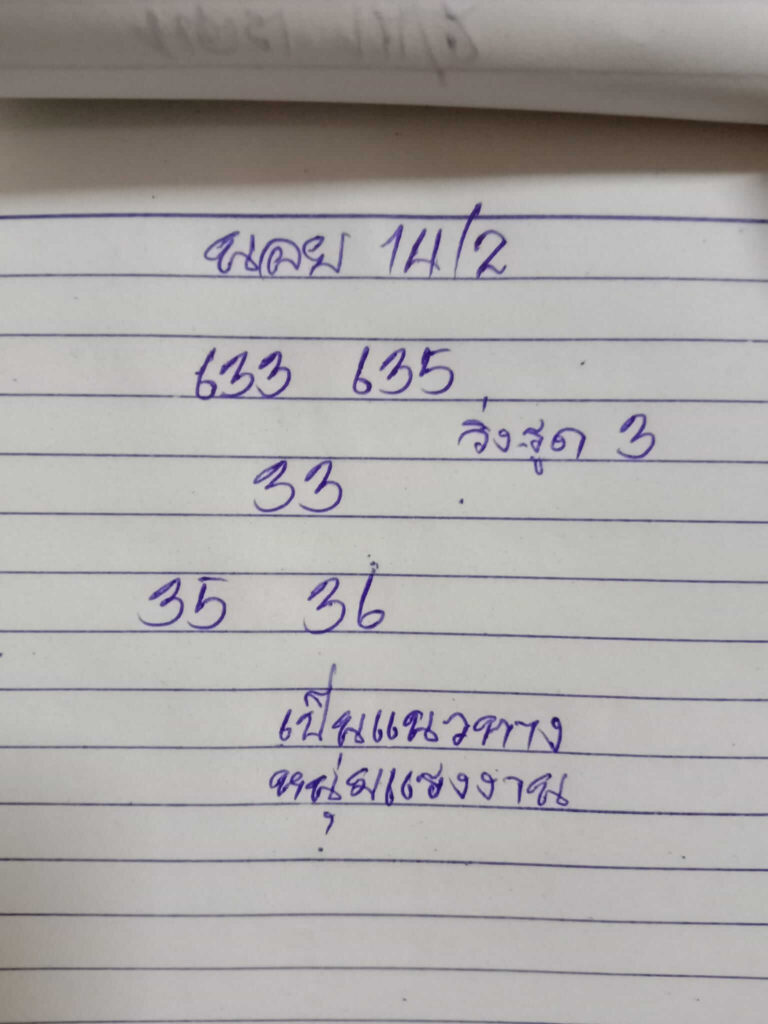 นอย 14/2
633 635
วิ่งรูด 3
33
35 36
เป็นแนวทาง
หนุ่มแรงงาน